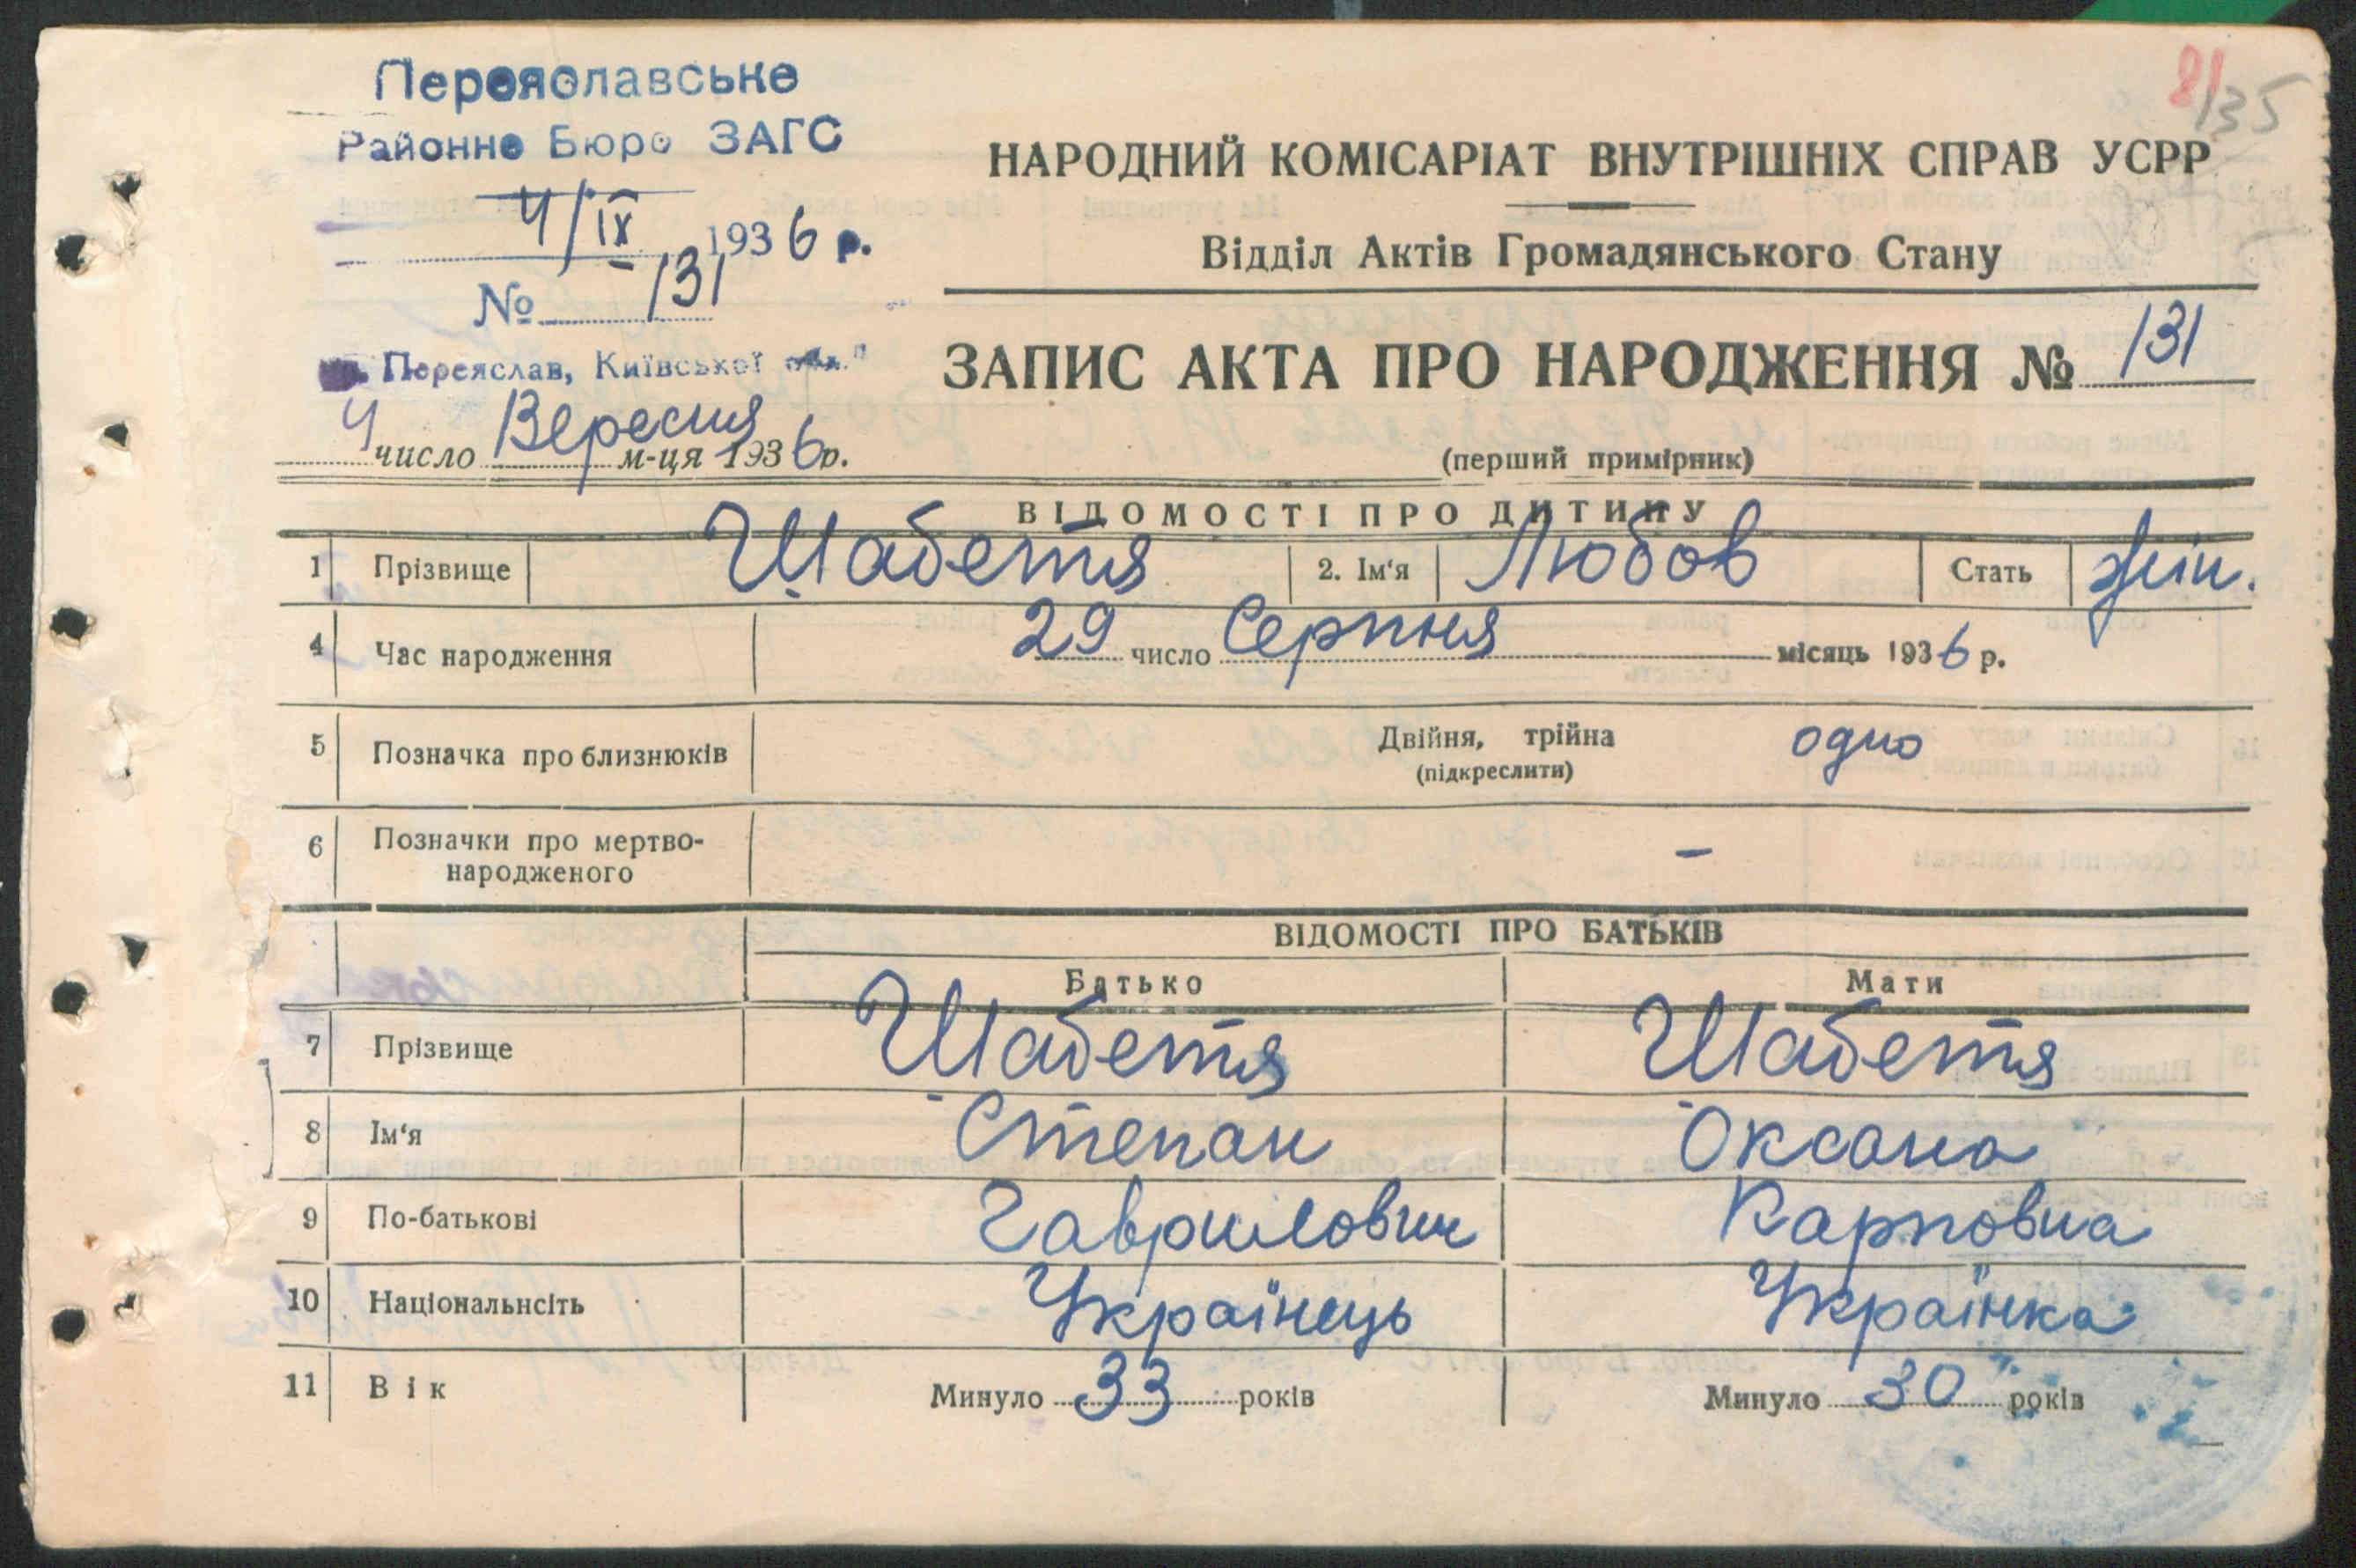 Переяславське
Районне Бюро ЗАГС
4/IX 1936 р.
№ 131
Переяслав, Київської обл.
4 число Вересня м-ця 1936 р.
81
135
НАРОДНИЙ КОМІСАРІАТ ВНУТРІШНІХ СПРАВ УСРР
Відділ Актів Громадянського Стану
ЗАПИС АКТА ПРО НАРОДЖЕННЯ № 131
(перший примірник)
ВІДОМОСТІ ПРО ДИТИНУ
1 Прізвище Шабетя 2. Ім'я Любов Стать жін.
4 Час народження 29 число Серпня місяць 1936 р.
5 Позначка про близнюків Двійня, трійна одно
(підкреслити)
6 Позначки про мертво-
народженого –
ВІДОМОСТІ ПРО БАТЬКІВ
Батько Мати
7 Прізвище Шабетя Шабетя
8 Ім'я Степан Оксана
9 По-батькові Гаврилович Карповна
10 Національнсіть Українець Українка
11 Вік Минуло 33 років Минуло 30 років